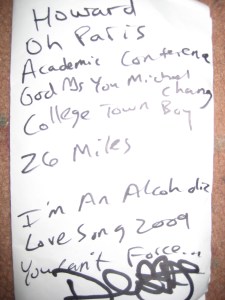 Howard
Oh Paris
Academic Conference
God Ms You Michael Chang
College Town Boy
26 Miles
I'm An Alcoholic
Love Song 2009
You Can't Force...